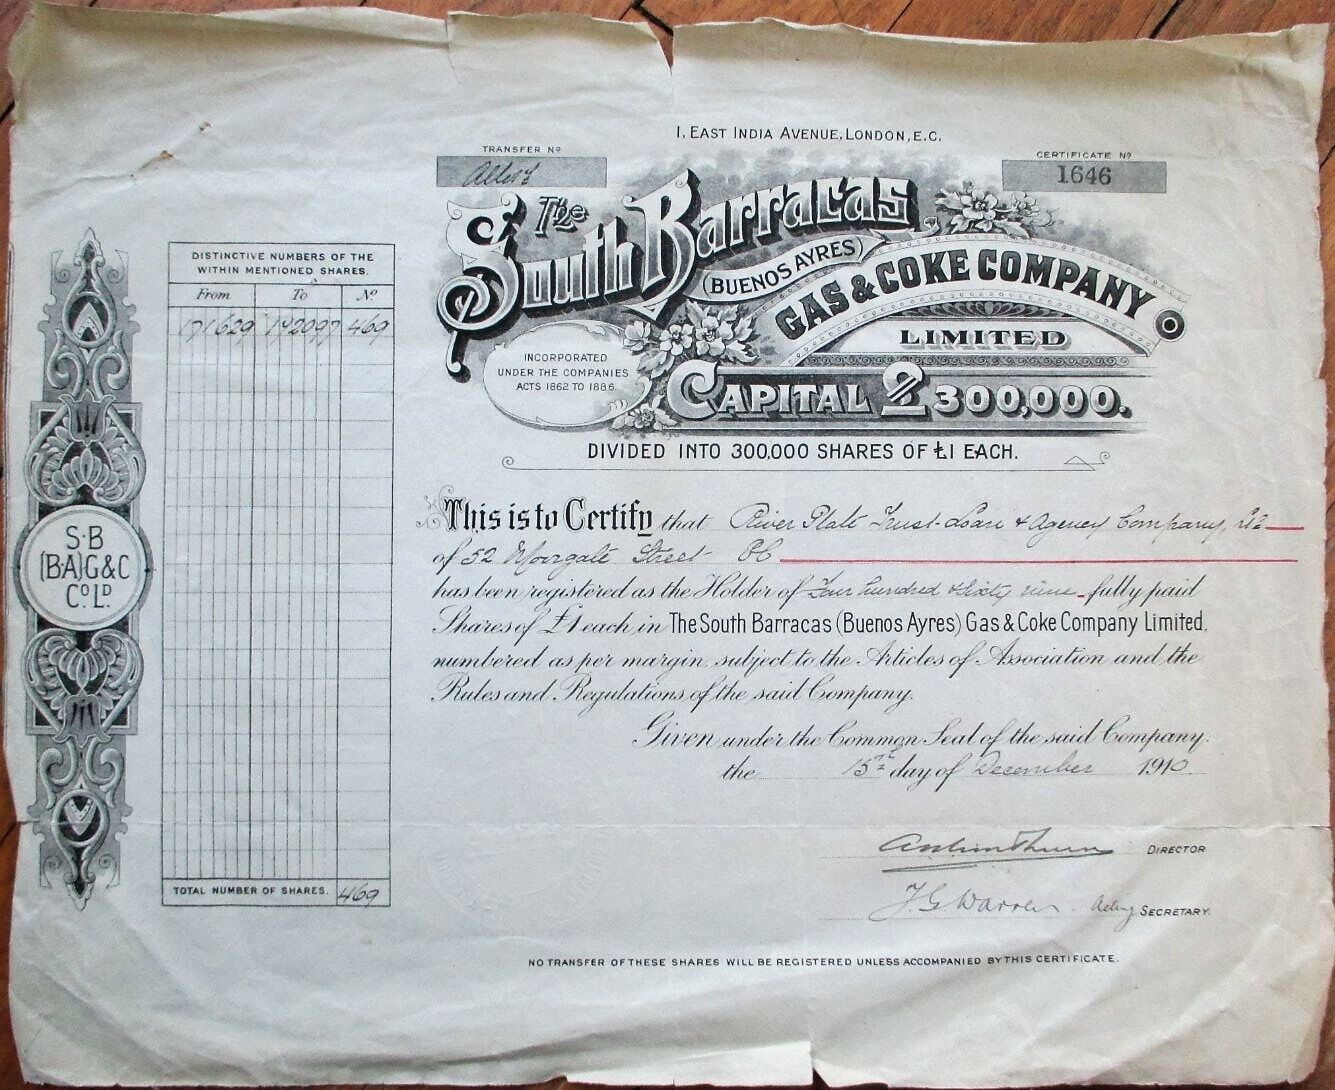 1, EAST INDIA AVENUE, LONDON, E.C.
TRANSFER Nº
Allot
CERTIFICATE Nº
1646
The South Barracas
(BUENOS AYRES)
GAS & COKE COMPANY
LIMITED
INCORPORATED
UNDER THE COMPANIES
ACTS 1862 TO 1886.
CAPITAL £300,000.
DIVIDED INTO 300,000 SHARES OF £1 EACH.
DISTINCTIVE NUMBERS OF THE
WITHIN MENTIONED SHARES.
From To Nº
171629 172097 469
TOTAL NUMBER OF SHARES. 469
S·B
(B·A)G&C
Cº Lᴰ
This is to Certify that River Plate Trust Loan & Agency Company, Ld
of 52 Moorgate Street EC
has been registered as the Holder of Four hundred & Sixty nine fully paid
Shares of £1 each in The South Barracas (Buenos Ayres) Gas & Coke Company Limited,
numbered as per margin, subject to the Articles of Association and the
Rules and Regulations of the said Company.
Given under the Common Seal of the said Company.
the 15th day of December 1910
DIRECTOR
J. G. Warren Acting SECRETARY.
NO TRANSFER OF THESE SHARES WILL BE REGISTERED UNLESS ACCOMPANIED BY THIS CERTIFICATE.